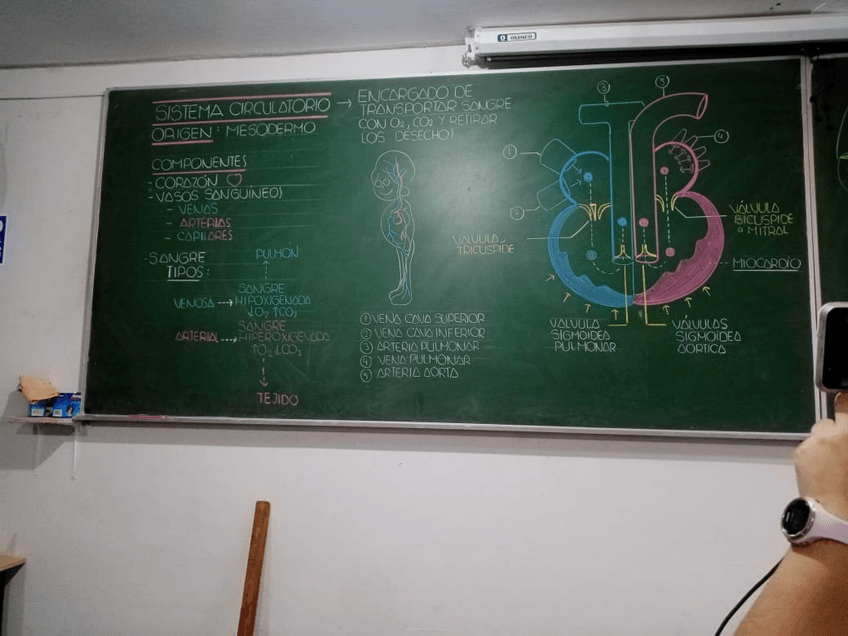 SISTEMA CIRCULATORIO → ENCARGADO DE
TRANSPORTAR SANGRE
CON O₂, CO₂ Y RETIRAR
LOS DESECHOS
ORIGEN: MESODERMO
COMPONENTES
- CORAZÓN ♡
- VASOS SANGUINEOS
- VENAS
- ARTERIAS
- CAPILARES
- SANGRE
TIPOS:
PULMÓN
VENOSA → SANGRE
HIPOXIGENADA
↓O₂ ↑CO₂
ARTERIAL → SANGRE
HIPEROXIGENADA
↑O₂ ↓CO₂
TEJIDO
① VENA CAVA SUPERIOR
② VENA CAVA INFERIOR
③ ARTERIA PULMONAR
④ VENA PULMONAR
⑤ ARTERIA AORTA
③
⑤
①
④
②
VÁLVULA
TRICUSPIDE
VÁLVULA
BICUSPIDE
o MITRAL
MIOCARDIO
VÁLVULA
SIGMOIDEA
PULMONAR
VÁLVULAS
SIGMOIDEA
AORTICA